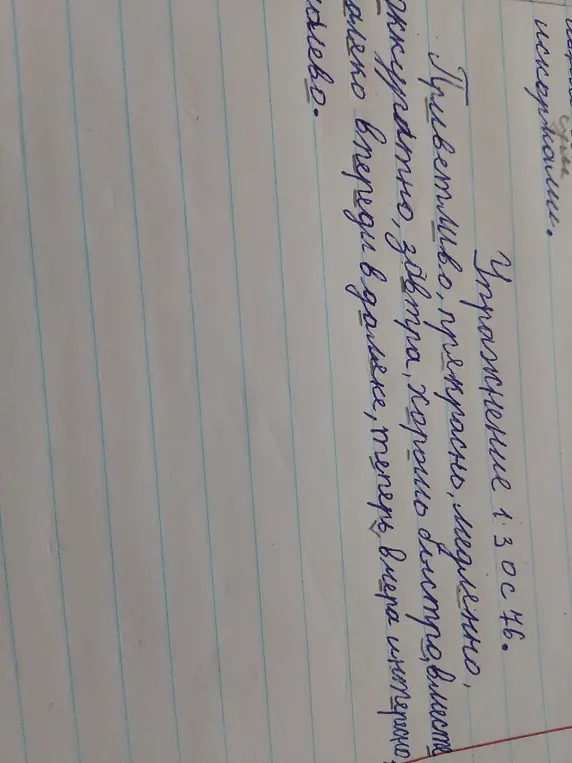 искоркали.
Упражнение 130 с 76.
Приветливо, прекрасно, медленно,
аккуратно, завтра, хорошо быстра, вместе
впереди вдалеке, теперь, вчера интересно,